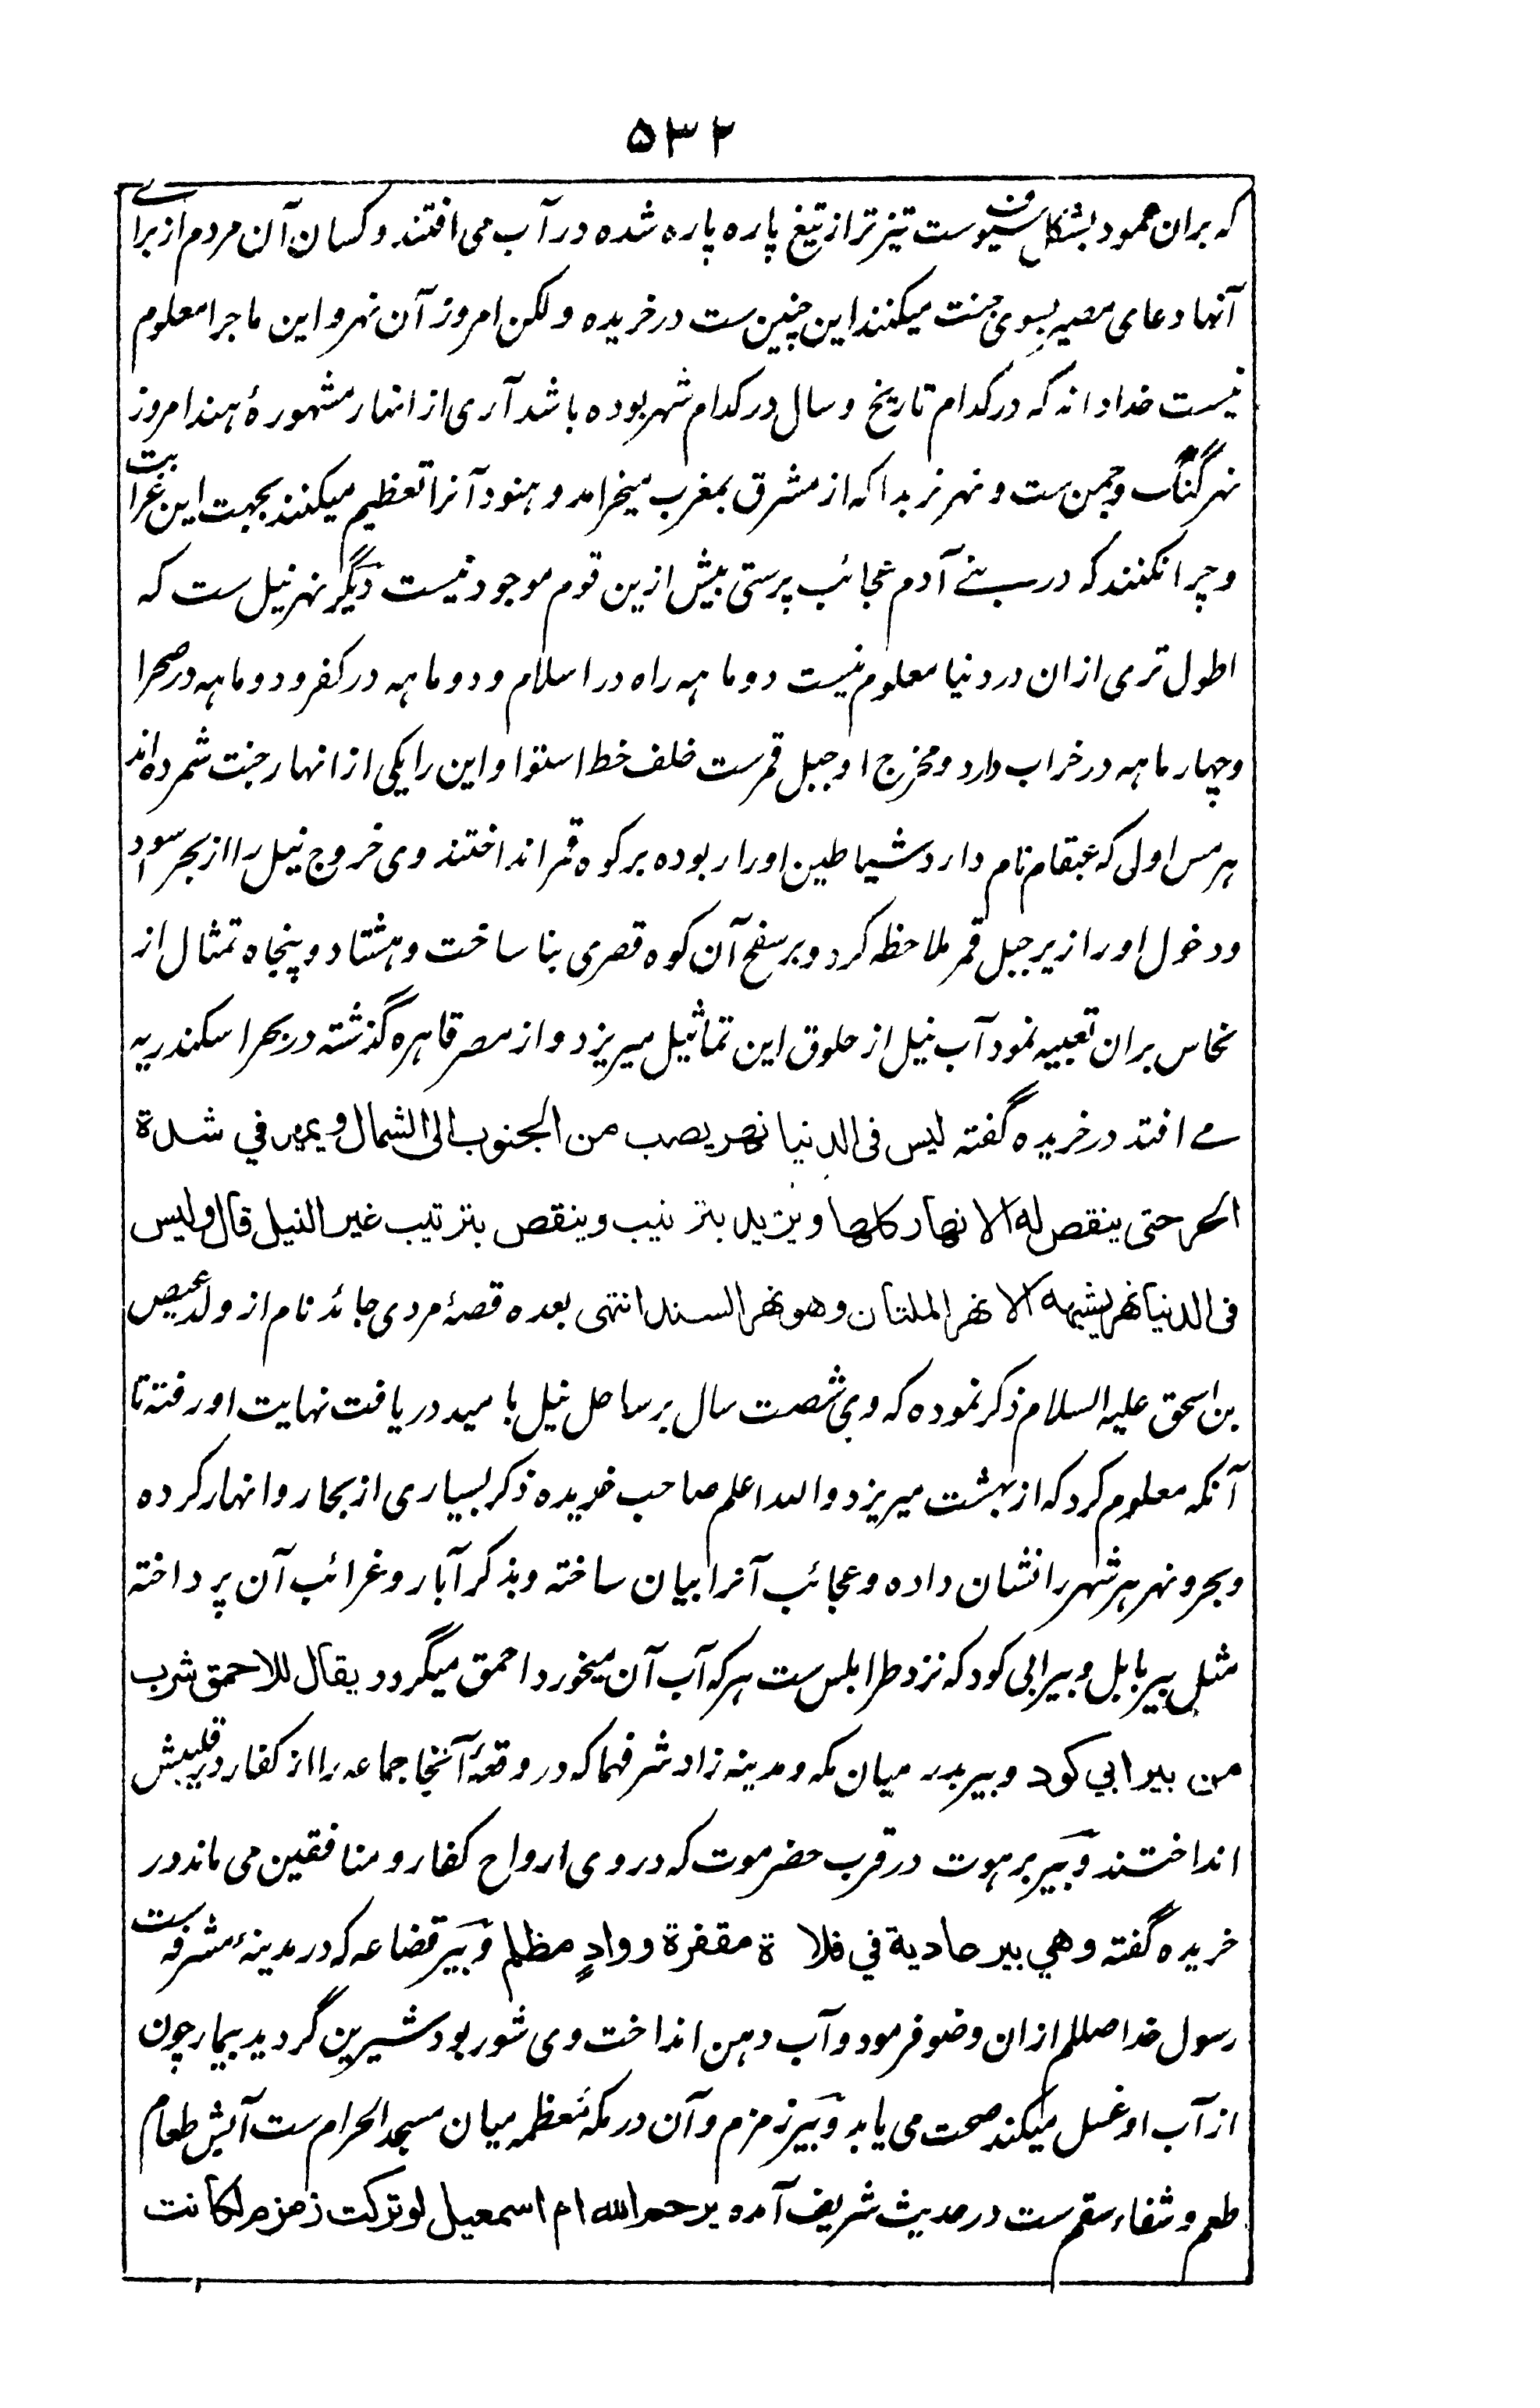 ۵۳۲
که بران عمود بشکل سیوف ست تیزتر از تیغ پاره پاره شده در آب می افتند و کسان آن مردم از برای
آنها دعای مصیر بسوی جنت میکنند این چنین ست در خریده ولکن امروز آن نهر و این ماجرا معلوم
نیست خدا داند که در کدام تاریخ و سال در کدام شهر بوده باشد آری از انهار مشهورهٔ هند امروز
نهر گنگ و جمن ست و نهر نربدا که از مشرق بمغرب میخرامد و هنود آنرا تعظیم میکنند بجهت این غرابت
و چرا نکنند که در بنے آدم عجائب پرستی بیش ازین قوم موجود نیست دیگر نهر نیل ست که
اطول تری ازان در دنیا معلوم نیست دو ماهه راه در اسلام و دو ماهه در کفر و دو ماهه در صحرا
و چهار ماهه در خراب دارد و مخرج او جبل قمرست خلف خط استوا و این را یکی از انهار جنت شمرده اند
هرمس اولی که عبقام نام دارد شیاطین او را ربوده بر کوه قمر انداختند وی خروج نیل را از بحر اسود
و دخول او را زیر جبل قمر ملاحظه کرد و بر سفح آن کوه قصری بنا ساخت و هشتاد و پنجاه تمثال از
نحاس بران تعبیه نمود آب نیل از حلوق این تماثیل میریزد و از مصر قاهره گذشته در بحر اسکندریه
مے افتد در خریده گفته لیس فی الدنیا نهر یصب من الجنوب الی الشمال و یمر فی شدة
الحر حتی ینقص له الانهار کلها و یزید بترتیب و ینقص بترتیب غیر النیل قال ولیس
فی الدنیا نهر یشبهه الا نهر الملتان وهو نهر السند انتهی بعده قصهٔ مردی حائذ نام از ولد عیص
بن اسحق علیه السلام ذکر نموده که وی شصت سال بر ساحل نیل بامید دریافت نهایت او رفته تا
آنکه معلوم کرد که از بهشت میریزد والله اعلم صاحب خریده ذکر بسیاری از بحار و انهار کرده
و بحر و نهر هر شهر را نشان داده و عجائب آنرا بیان ساخته و بذکر آبار و غرائب آن پرداخته
مثل بیر بابل و بیر ابی کود که نزد طرابلس ست هر که آب آن میخورد احمق میگردد یقال للاحمق شرب
من بیر ابی کود و بیر بدر میان مکه و مدینه زاد شرفهما که در وقعهٔ آنجا جماعه را از کفار در قلیبش
انداختند و بیر برهوت در قرب حضرموت که در وی ارواح کفار و منافقین می ماند در
خریده گفته وهی بیر حادیة فی فلاة مقفرة و وادٍ مظلم و بیر قضاعه که در مدینهٔ مشرفه ست
رسول خدا صللم ازان وضو فرمود و آب دهن انداخت وی شور بود شیرین گردید بیمار چون
از آب او غسل میکند صحت می یابد و بیر زمزم و آن در مکهٔ معظمه میان مسجد الحرام ست آبش طعام
طعم و شفاء سقم ست در حدیث شریف آمده یرحم الله ام اسمعیل لو ترکت زمزم لکانت